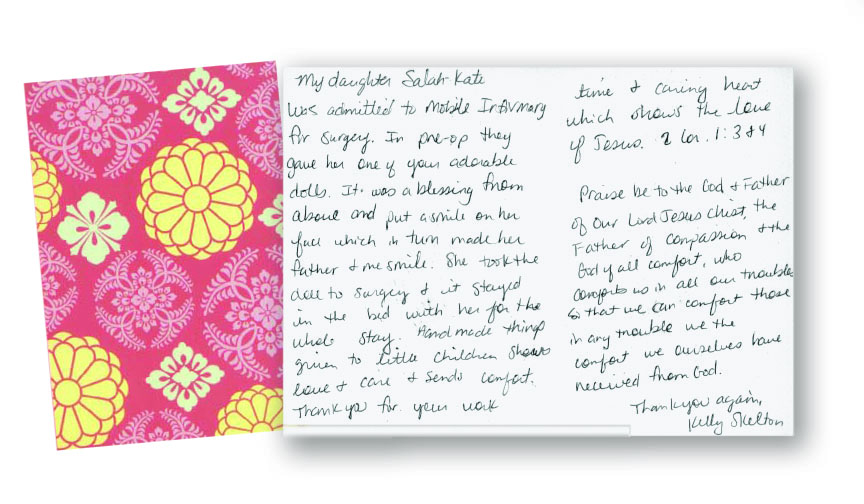 My daughter Salah-Kate
was admitted to Mobile Infirmary
for surgery. In pre-op they
gave her one of your adorable
dolls. It was a blessing from
above and put a smile on her
face which in turn made her
father & me smile. She took the
doll to surgery & it stayed
in the bed with her for the
whole stay. Handmade things
given to little children shows
love & care & sends comfort.
Thank you for your work
time & caring heart
which shows the love
of Jesus. 2 Cor. 1:3&4
Praise be to the God & Father
of Our Lord Jesus Christ, the
Father of compassion & the
God of all comfort, who
comforts us in all our troubles
so that we can comfort those
in any trouble w/ the
comfort we ourselves have
received from God.
Thank you again,
Kelly Skelton